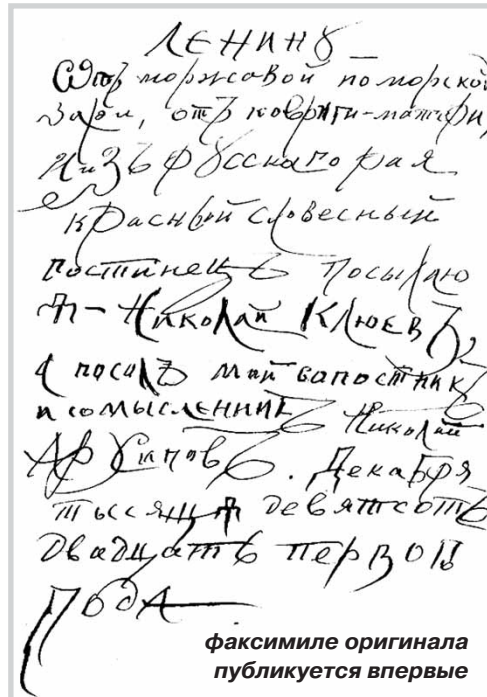 ЛЕНИНУ
Отъ моржовой поморской
зари, отъ ковриги-матери,
изъ русскаго рая
красный словесный
гостинецъ посылаю
я – Николай Клюевъ,
а послъ мой сопостникъ
и сомысленникъ Николай
Архиповъ. Декабря
тысяща девятсотъ
двадцать первой
года
факсимиле оригинала
публикуется впервые